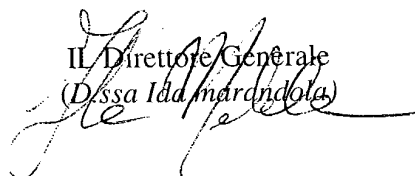 IL Direttore Generale
(D.ssa Ida marandola)